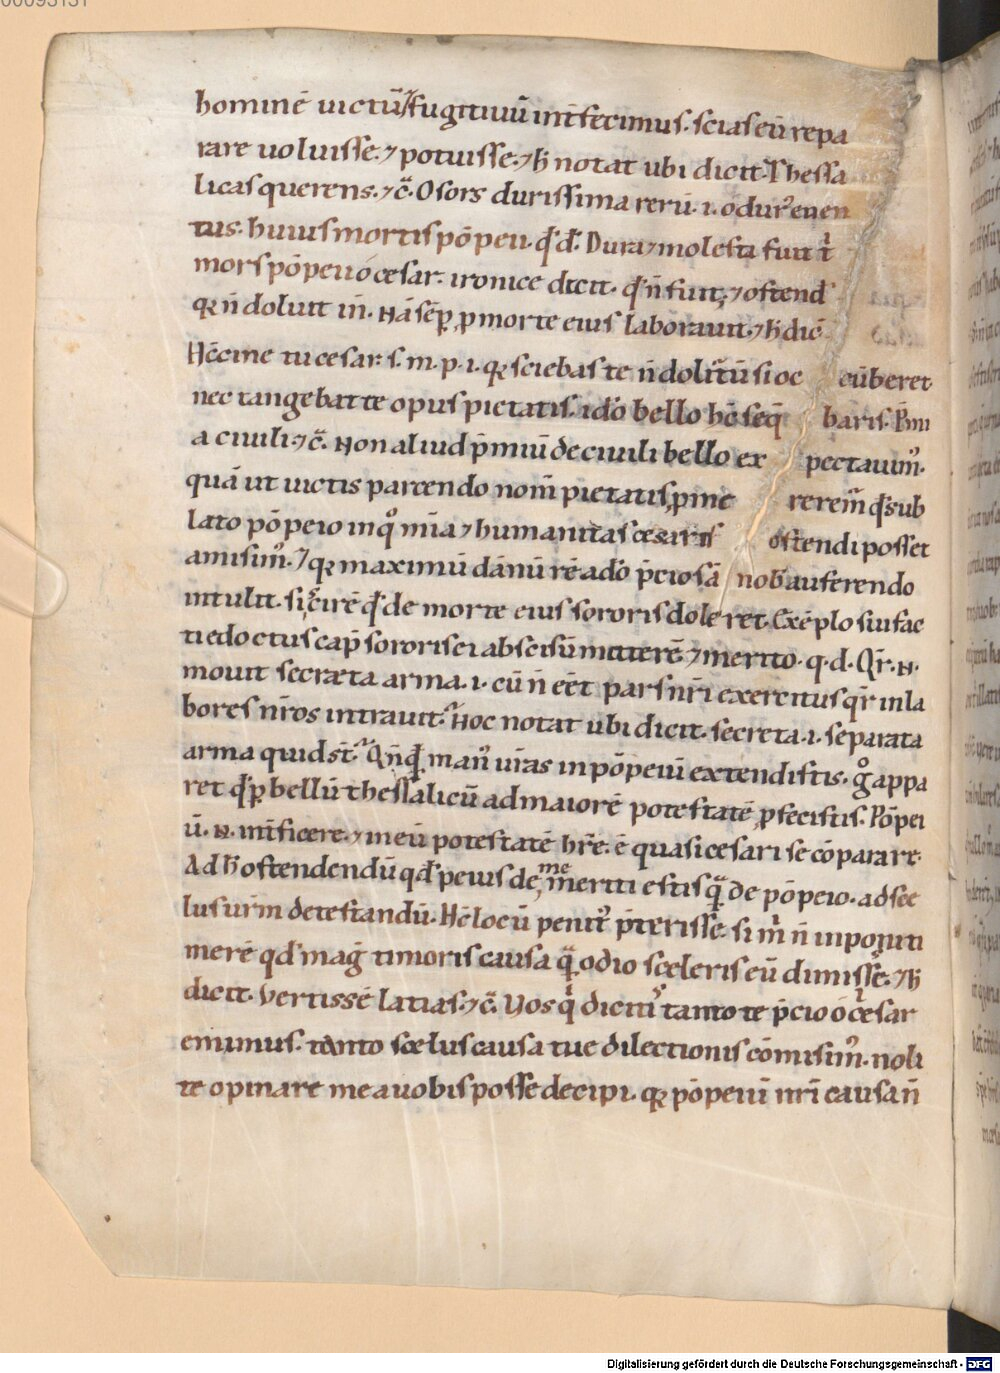 00093131
hominē uictū ⁊ fugitiuū int̄fecimus. scias eū repa
rare uoluisse. ⁊ potuisse. ⁊ h̄ notat ubi dicit. Thessa
licas querens. ⁊c̄. O sors durissima rerū. .i. o dur' euen
tus. huius mortis pōpeii. q̄d. Dura ⁊ molesta fuit t
mors pōpeii ó cesar. ironice dicit. q̄ n̄ fuit. ⁊ ostend
qꝛ n̄ doluit in. Nā sēp̄ p̱ morte eius laborauit. ⁊ h̄ dic̄
Hēcine tu cesar. s. m. p. .i. qꝛ sciebas te n̄ doliturū si oc cūberet
nec tangebat te opus pietatis. ido bello hc̄ seq̄ baris. Pmi
a ciuili. ⁊c̄. Non aliud p̄miū de ciuili bello ex pectauim'.
quā ut uictis parcendo nom̄ pietatis p̱me rerem̄ q̄d sub
lato pōpeio in quo mīa ⁊ humanitas cesaris ostendi posset
amisim'. ⁊ qꝛ maximū dānū rē ado p̄ciosā nob' auferendo
intulit. si scirē q̄d de morte eius sororis doleret. Exēplo sui fac
ti edoctus cap̄ sororis ei abscisū mitterē. ⁊ merito. q. d. Qr̄. N.
mouit secræta arma. .i. cū n̄ eēt pars nr̄i exercitus qr̄ in la
bores nr̄os intrauit. Hoc notat ubi dicit. secreta .i. separata
arma quid st̄. Qn̄ q̄dē man' uras in pōpeiū extendistis. g° appa
ret q̄d p̱ bellū thessalicū ad maiorē potestatē p̱fecistis. Pōpei
ū. N. int̄ficere. ⁊ meū potestatē hr̄e. ē quasi cesari se cōparare.
Ad h̄ ostendendū q̄d peius de me meriti estis q̄ de pōpeio. ad sce
lus ur̄m detestandū. Hc̄ locū penit' p̄terisse. si m̄ n̄ in ponti
merē qd' mag̱ timoris causa q̄ odio sceleris eū dimisse. ⁊ h̄
dicit. Vertissē latias. ⁊c̄. Vos q̄ dicitis tanto te p̄cio ó cesar
emimus. tanto scelus causa tue dilectionis cōmisim'. noli
te opinare me a uobis posse decipi. qꝛ pōpeiū nr̄i causa n̄
Digitalisierung gefördert durch die Deutsche Forschungsgemeinschaft - DFG